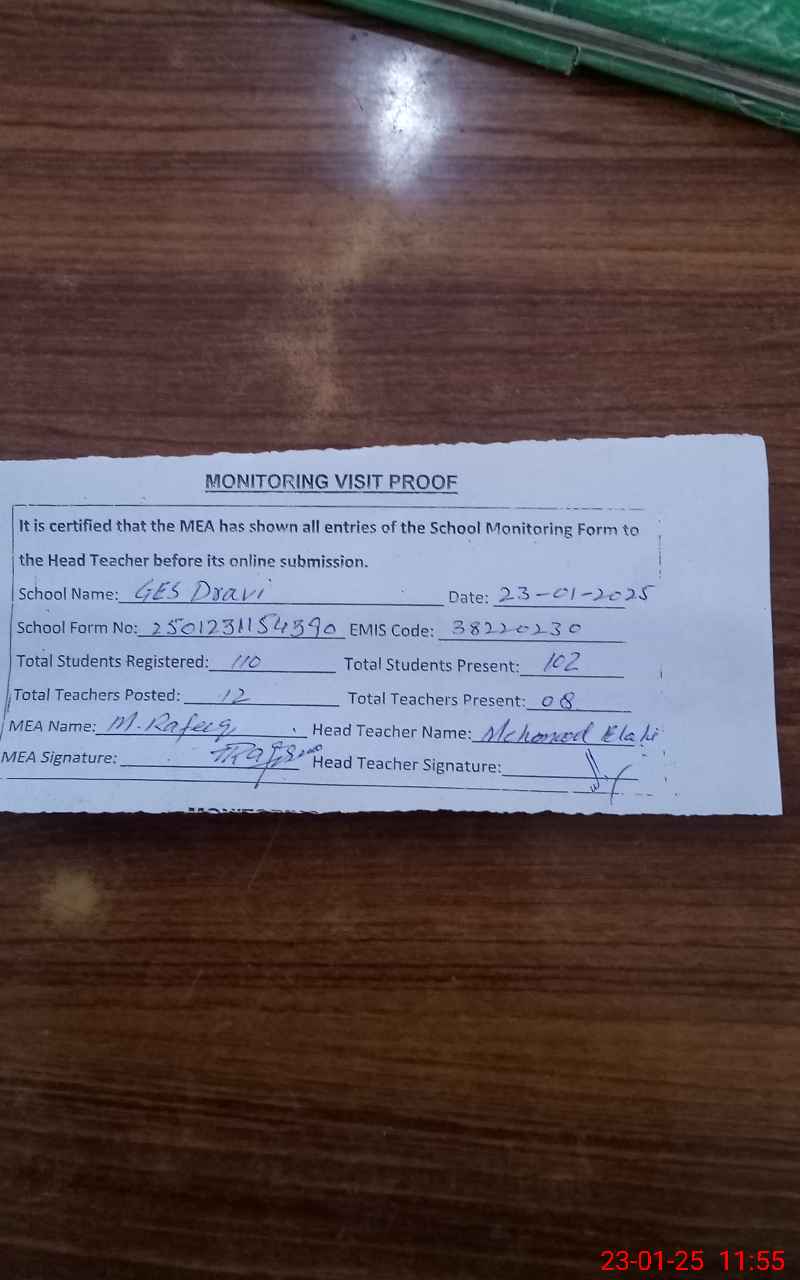 MONITORING VISIT PROOF
It is certified that the MEA has shown all entries of the School Monitoring Form to
the Head Teacher before its online submission.
School Name: GES Dravi Date: 23-01-2025
School Form No: 2501231154390 EMIS Code: 38220230
Total Students Registered: 110 Total Students Present: 102
Total Teachers Posted: 12 Total Teachers Present: 08
MEA Name: M. Rafeeq Head Teacher Name: Elahi
MEA Signature: Head Teacher Signature:
23-01-25 11:55